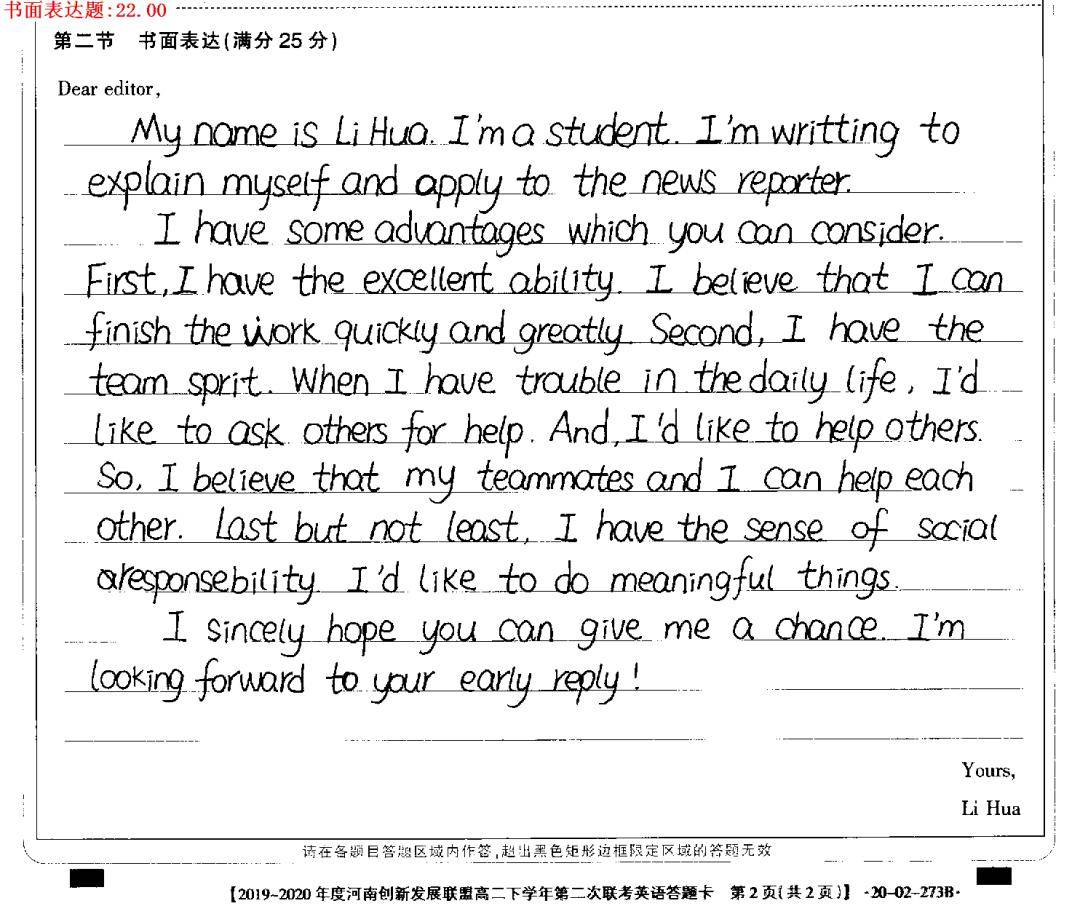 书面表达题:22.00
第二节 书面表达(满分 25 分)
Dear editor,
My name is Li Hua. I'm a student. I'm writting to
explain myself and apply to the news reporter.
I have some advantages which you can consider.
First, I have the excellent ability. I believe that I can
finish the work quickly and greatly. Second, I have the
team sprit. When I have trouble in the daily life, I'd
like to ask others for help. And, I'd like to help others.
So, I believe that my teammates and I can help each
other. Last but not least, I have the sense of social
responsebility. I'd like to do meaningful things.
I sincely hope you can give me a chance. I'm
looking forward to your early reply!
Yours,
Li Hua
请在各题目答题区域内作答,超出黑色矩形边框限定区域的答题无效
【2019~2020 年度河南创新发展联盟高二下学年第二次联考英语答题卡 第 2 页(共 2 页)】 ·20-02-273B·